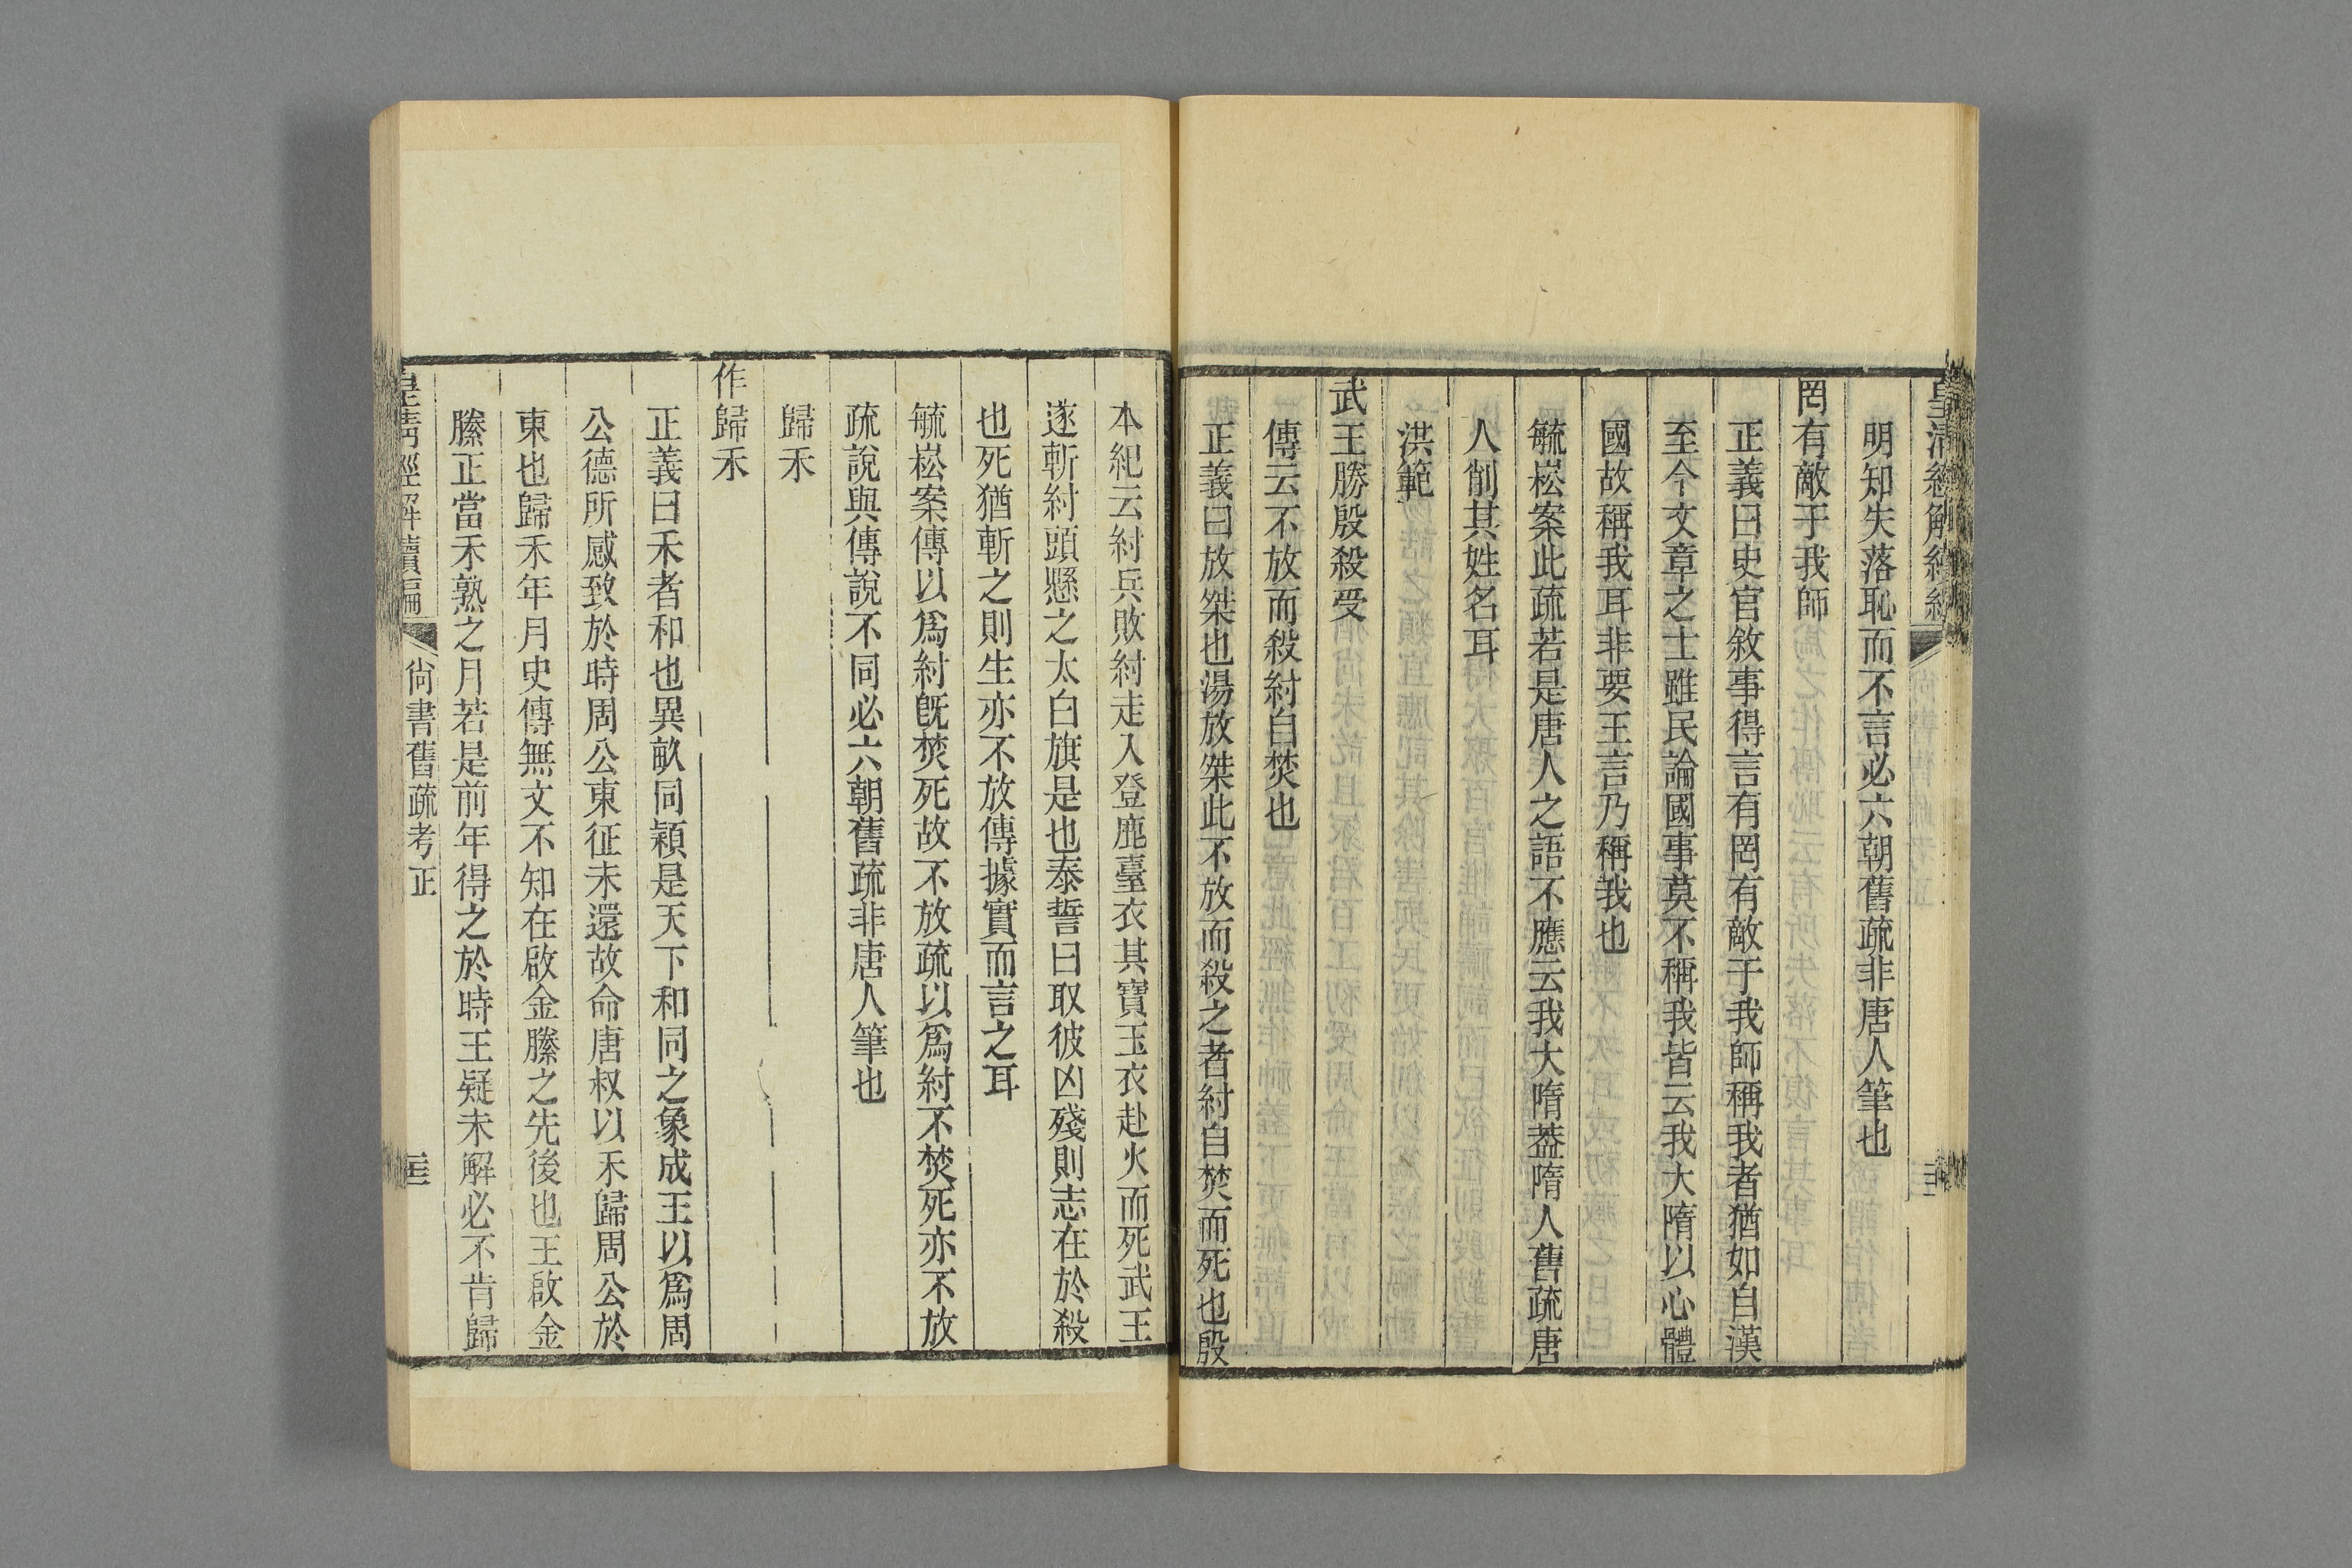 明知失落恥而不言必六朝舊疏非唐人筆也
罔有敵于我師
正義曰史官敘事得言有罔有敵于我師稱我者猶如自漢
至今文章之士雖民論國事莫不稱我皆云我大隋以心體
國故稱我耳非要王言乃稱我也
毓崧案此疏若是唐人之語不應云我大隋葢隋人舊疏唐
人削其姓名耳
洪範
武王勝殷殺受
傳云不放而殺紂自焚也
正義曰放桀也湯放桀此不放而殺之者紂自焚而死也殷
本紀云紂兵敗紂走入登鹿臺衣其寶玉衣赴火而死武王
遂斬紂頭懸之太白旗是也泰誓曰取彼凶殘則志在於殺
也死猶斬之則生亦不放傳據實而言之耳
毓崧案傳以爲紂旣焚死故不放疏以爲紂不焚死亦不放
疏說與傳說不同必六朝舊疏非唐人筆也
歸禾
作歸禾
正義曰禾者和也異畝同穎是天下和同之象成王以爲周
公德所感致於時周公東征未還故命唐叔以禾歸周公於
東也歸禾年月史傳無文不知在啟金縢之先後也王啟金
縢正當禾熟之月若是前年得之於時王疑未解必不肯歸
皇清經解續編 尚書舊疏考正